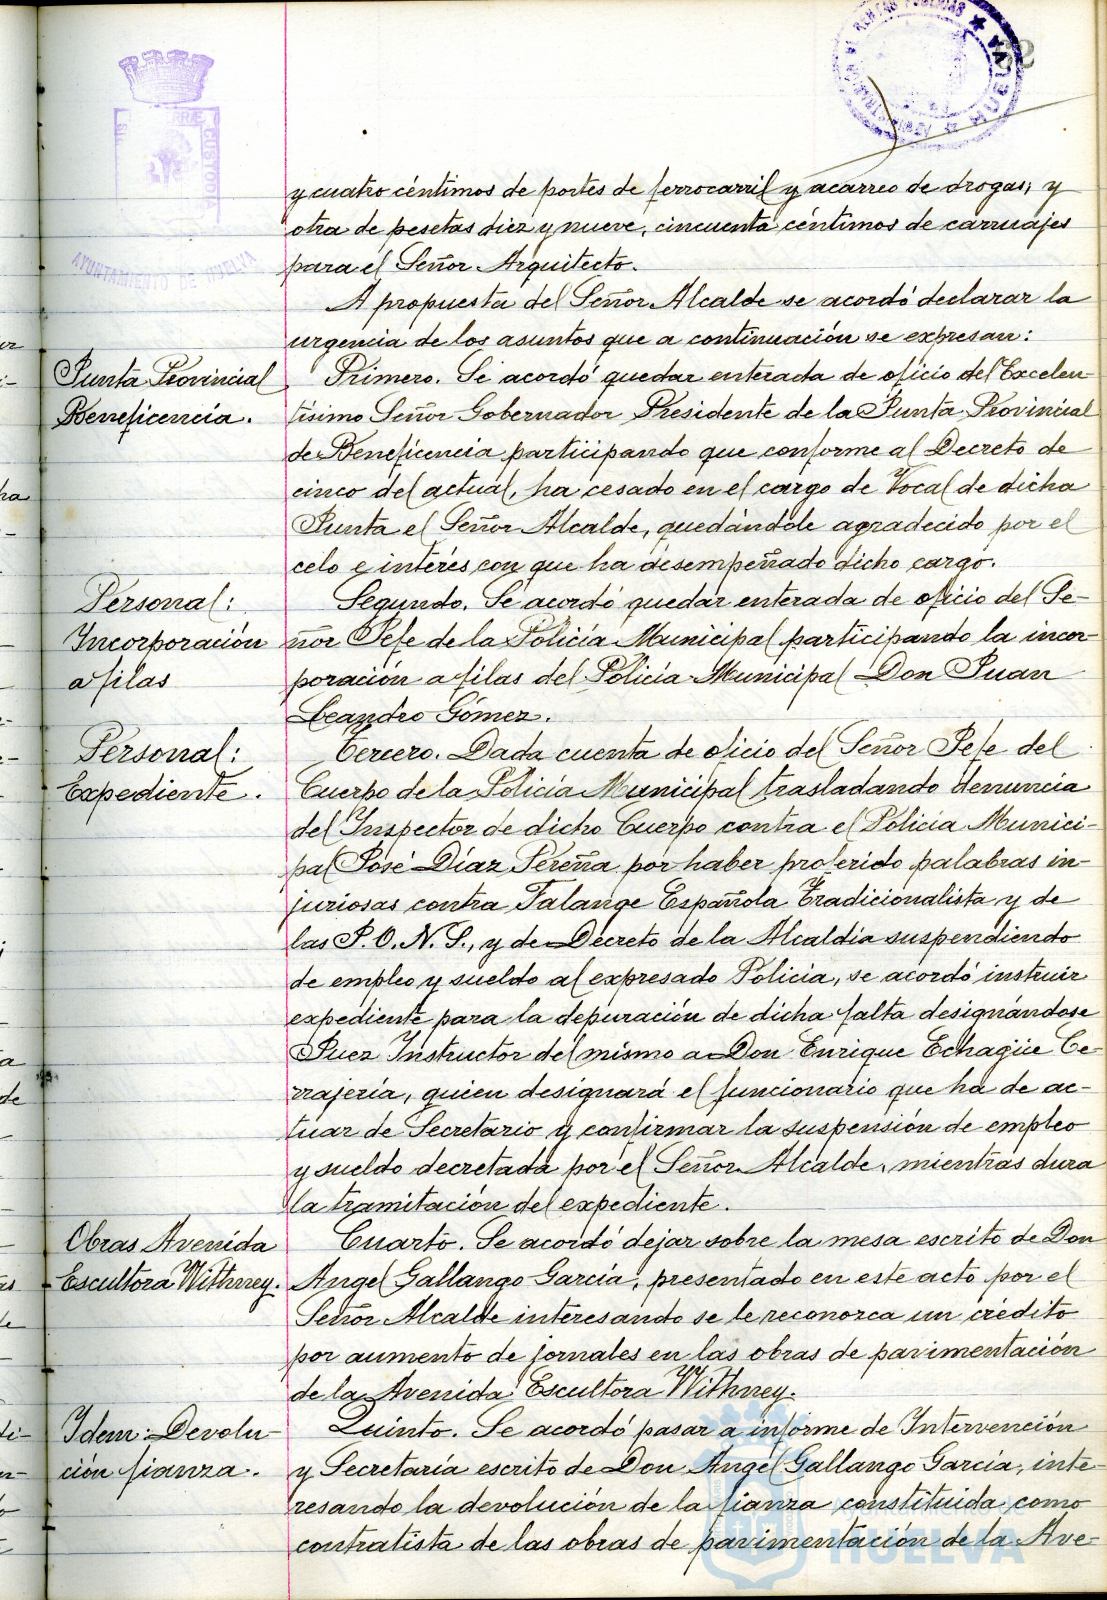 AYUNTAMIENTO DE HUELVA
y cuatro céntimos de portes de ferrocarril y acarreo de drogas; y
otra de pesetas diez y nueve, cincuenta céntimos de carruajes
para el Señor Arquitecto.
A propuesta del Señor Alcalde se acordó declarar la
urgencia de los asuntos que a continuación se expresan:
Junta Provincial
Beneficencia.
Primero. Se acordó quedar enterada de oficio del Excelen-
tísimo Señor Gobernador Presidente de la Junta Provincial
de Beneficencia participando que conforme al Decreto de
cinco del actual, ha cesado en el cargo de Vocal de dicha
Junta el Señor Alcalde, quedándole agradecido por el
celo e interés con que ha desempeñado dicho cargo.
Personal:
Incorporación
a filas
Segundo. Se acordó quedar enterada de oficio del Se-
ñor Jefe de la Policía Municipal participando la incor-
poración a filas del Policía Municipal Don Juan
Leandro Gómez.
Personal:
Expediente.
Tercero. Dada cuenta de oficio del Señor Jefe del
Cuerpo de la Policía Municipal trasladando denuncia
del Inspector de dicho Cuerpo contra el Policía Munici-
pal José Díaz Pereña por haber proferido palabras in-
juriosas contra Falange Española Tradicionalista y de
las J.O.N.S., y de Decreto de la Alcaldía suspendiendo
de empleo y sueldo al expresado Policía, se acordó instruir
expediente para la depuración de dicha falta designándose
Juez Instructor del mismo a Don Enrique Echagüe Ce-
rrajería, quien designará el funcionario que ha de ac-
tuar de Secretario y confirmar la suspensión de empleo
y sueldo decretada por el Señor Alcalde, mientras dura
la tramitación del expediente.
Obras Avenida
Escultora Withney.
Cuarto. Se acordó dejar sobre la mesa escrito de Don
Angel Gallango García, presentado en este acto por el
Señor Alcalde interesando se le reconozca un crédito
por aumento de jornales en las obras de pavimentación
de la Avenida Escultora Withney.
Idem: Devolu-
ción fianza.
Quinto. Se acordó pasar a informe de Intervención
y Secretaría escrito de Don Angel Gallango García, inte-
resando la devolución de la fianza constituida como
contratista de las obras de pavimentación de la Ave-
Ayuntamiento de
HUELVA